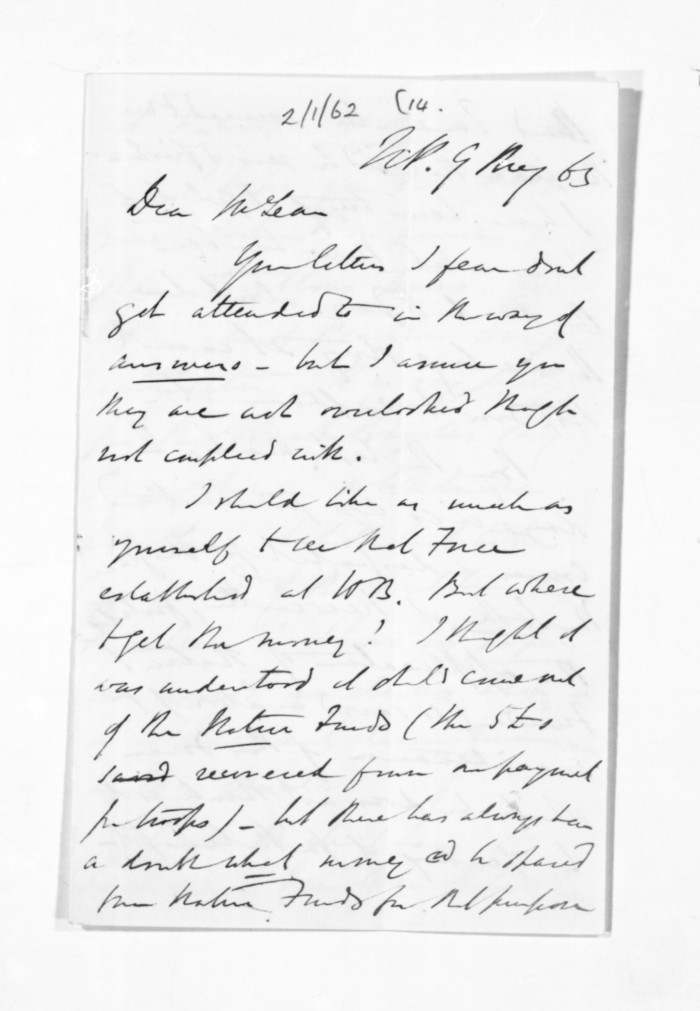 2/1/62 (14.
9 May 63
Dear McLean
Your letters I fear don't
get attended to in the way of
answers - but I assure you
they are not overlooked though
not complied with.
I should like as much as
yourself to see that Force
established at WB. But where
to get the money? I thought it
was understood it should come out
of the Native Funds (the
recovered from our payment
for troops) - but there has always been
a doubt what money cd be spared
from Native Funds for that purpose